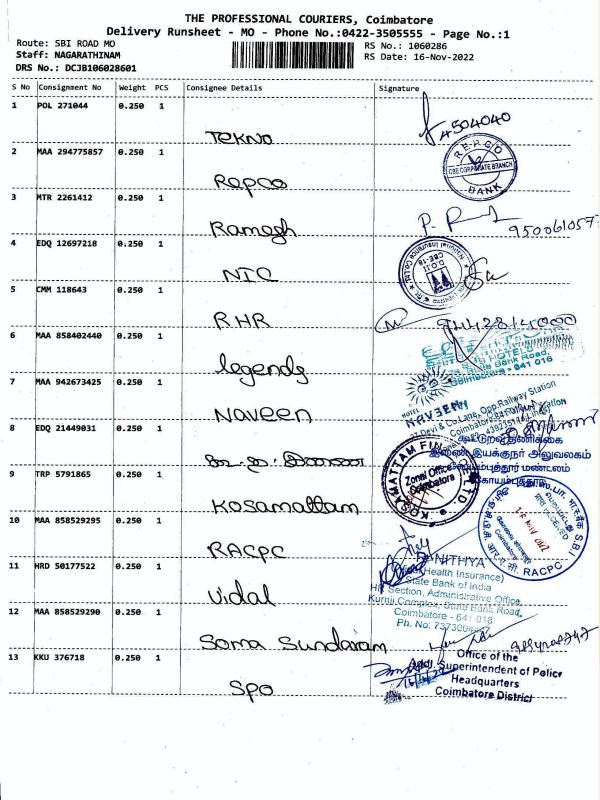 THE PROFESSIONAL COURIERS, Coimbatore
Delivery Runsheet - MO - Phone No.:0422-3505555 - Page No.:1
Route: SBI ROAD MO
RS No.: 1060286
Staff: NAGARATHINAM
RS Date: 16-Nov-2022
DRS No.: DCJB106028601
S No Consignment No Weight PCS Consignee Details Signature
1 POL 271044 0.250 1
Tekno
4504040
2 MAA 294775857 0.250 1
REPCO
CBE CORPORATE BRANCH
BANK
Repco
3 MTR 2261412 0.250 1
Ramesh
P.
950061057
4 EDQ 12697218 0.250 1
National Insurance Co.Ltd.
D.O.II
CBE-18
NIC
5 CMM 118643 0.250 1
RHR
6 MAA 858402440 0.250 1
HOTELS
State Bank Road,
Coimbatore - 641 018
legends
7 MAA 942673425 0.250 1
HOTEL
NAVEEN
Devi & Co.Lane, Opp.Railway Station
Naveen
8 EDQ 21449031 0.250 1
கூட்டுறவு தணிக்கை
இணை இயக்குநர் அலுவலகம்
கோயம்புத்தூர் மண்டலம்
கோயம்புத்தூர்
9 TRP 5791865 0.250 1
KOSAMATTAM FIN LTD.
Zonal Office
Coimbatore
Kosamattam
10 MAA 858529295 0.250 1
SBI
RACPC
RACPC
11 HRD 50177522 0.250 1
NITHYA
(Health Insurance)
State Bank of India
HR Section, Administrative Office,
Kurnji Complex, State Bank Road,
Coimbatore - 641 018
Vidal
12 MAA 858529290 0.250 1
Soma Sundaram
13 KKU 376718 0.250 1
Office of the
Addl. Superintendent of Police
Headquarters
Coimbatore District
SPO